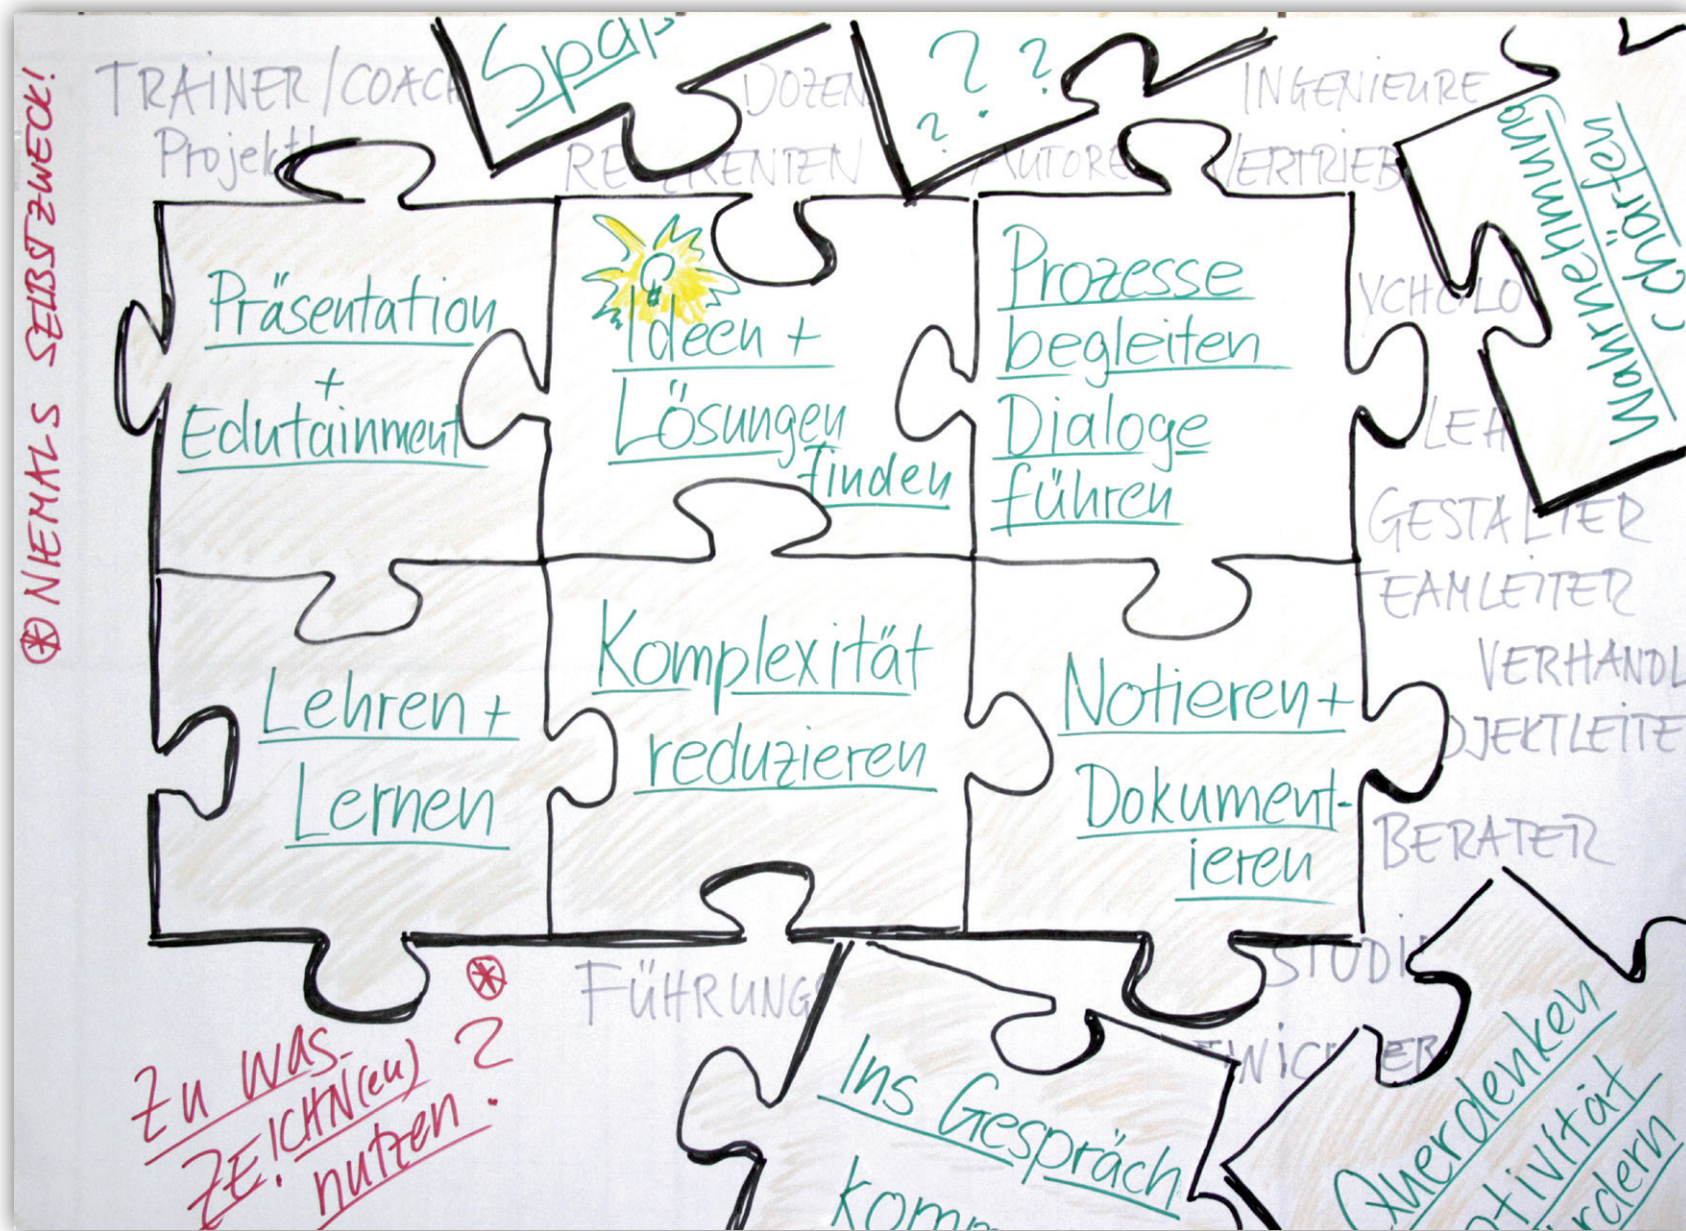 NIEMALS SELBSTZWECK!
TRAINER/COACH
Projekt
Spaß
DOZEN
REFERENTEN
? ? ? ?
AUTORE
INGENIEURE
VERTRIEB
Wahrnehmung
schärfen
Präsentation
+
Edutainment
Ideen +
Lösungen
finden
Prozesse
begleiten
Dialoge
führen
YCHOLO
LEH
GESTALTER
TEAMLEITER
VERHANDL
OJEKTLEITE
BERATER
Lehren +
Lernen
Komplexität
reduzieren
Notieren +
Dokument-
ieren
FÜHRUNGS
STUDI
Zu was
ZEICHN(en)
nutzen?
Ins Gespräch
komm
Querdenken
tivität
rdern